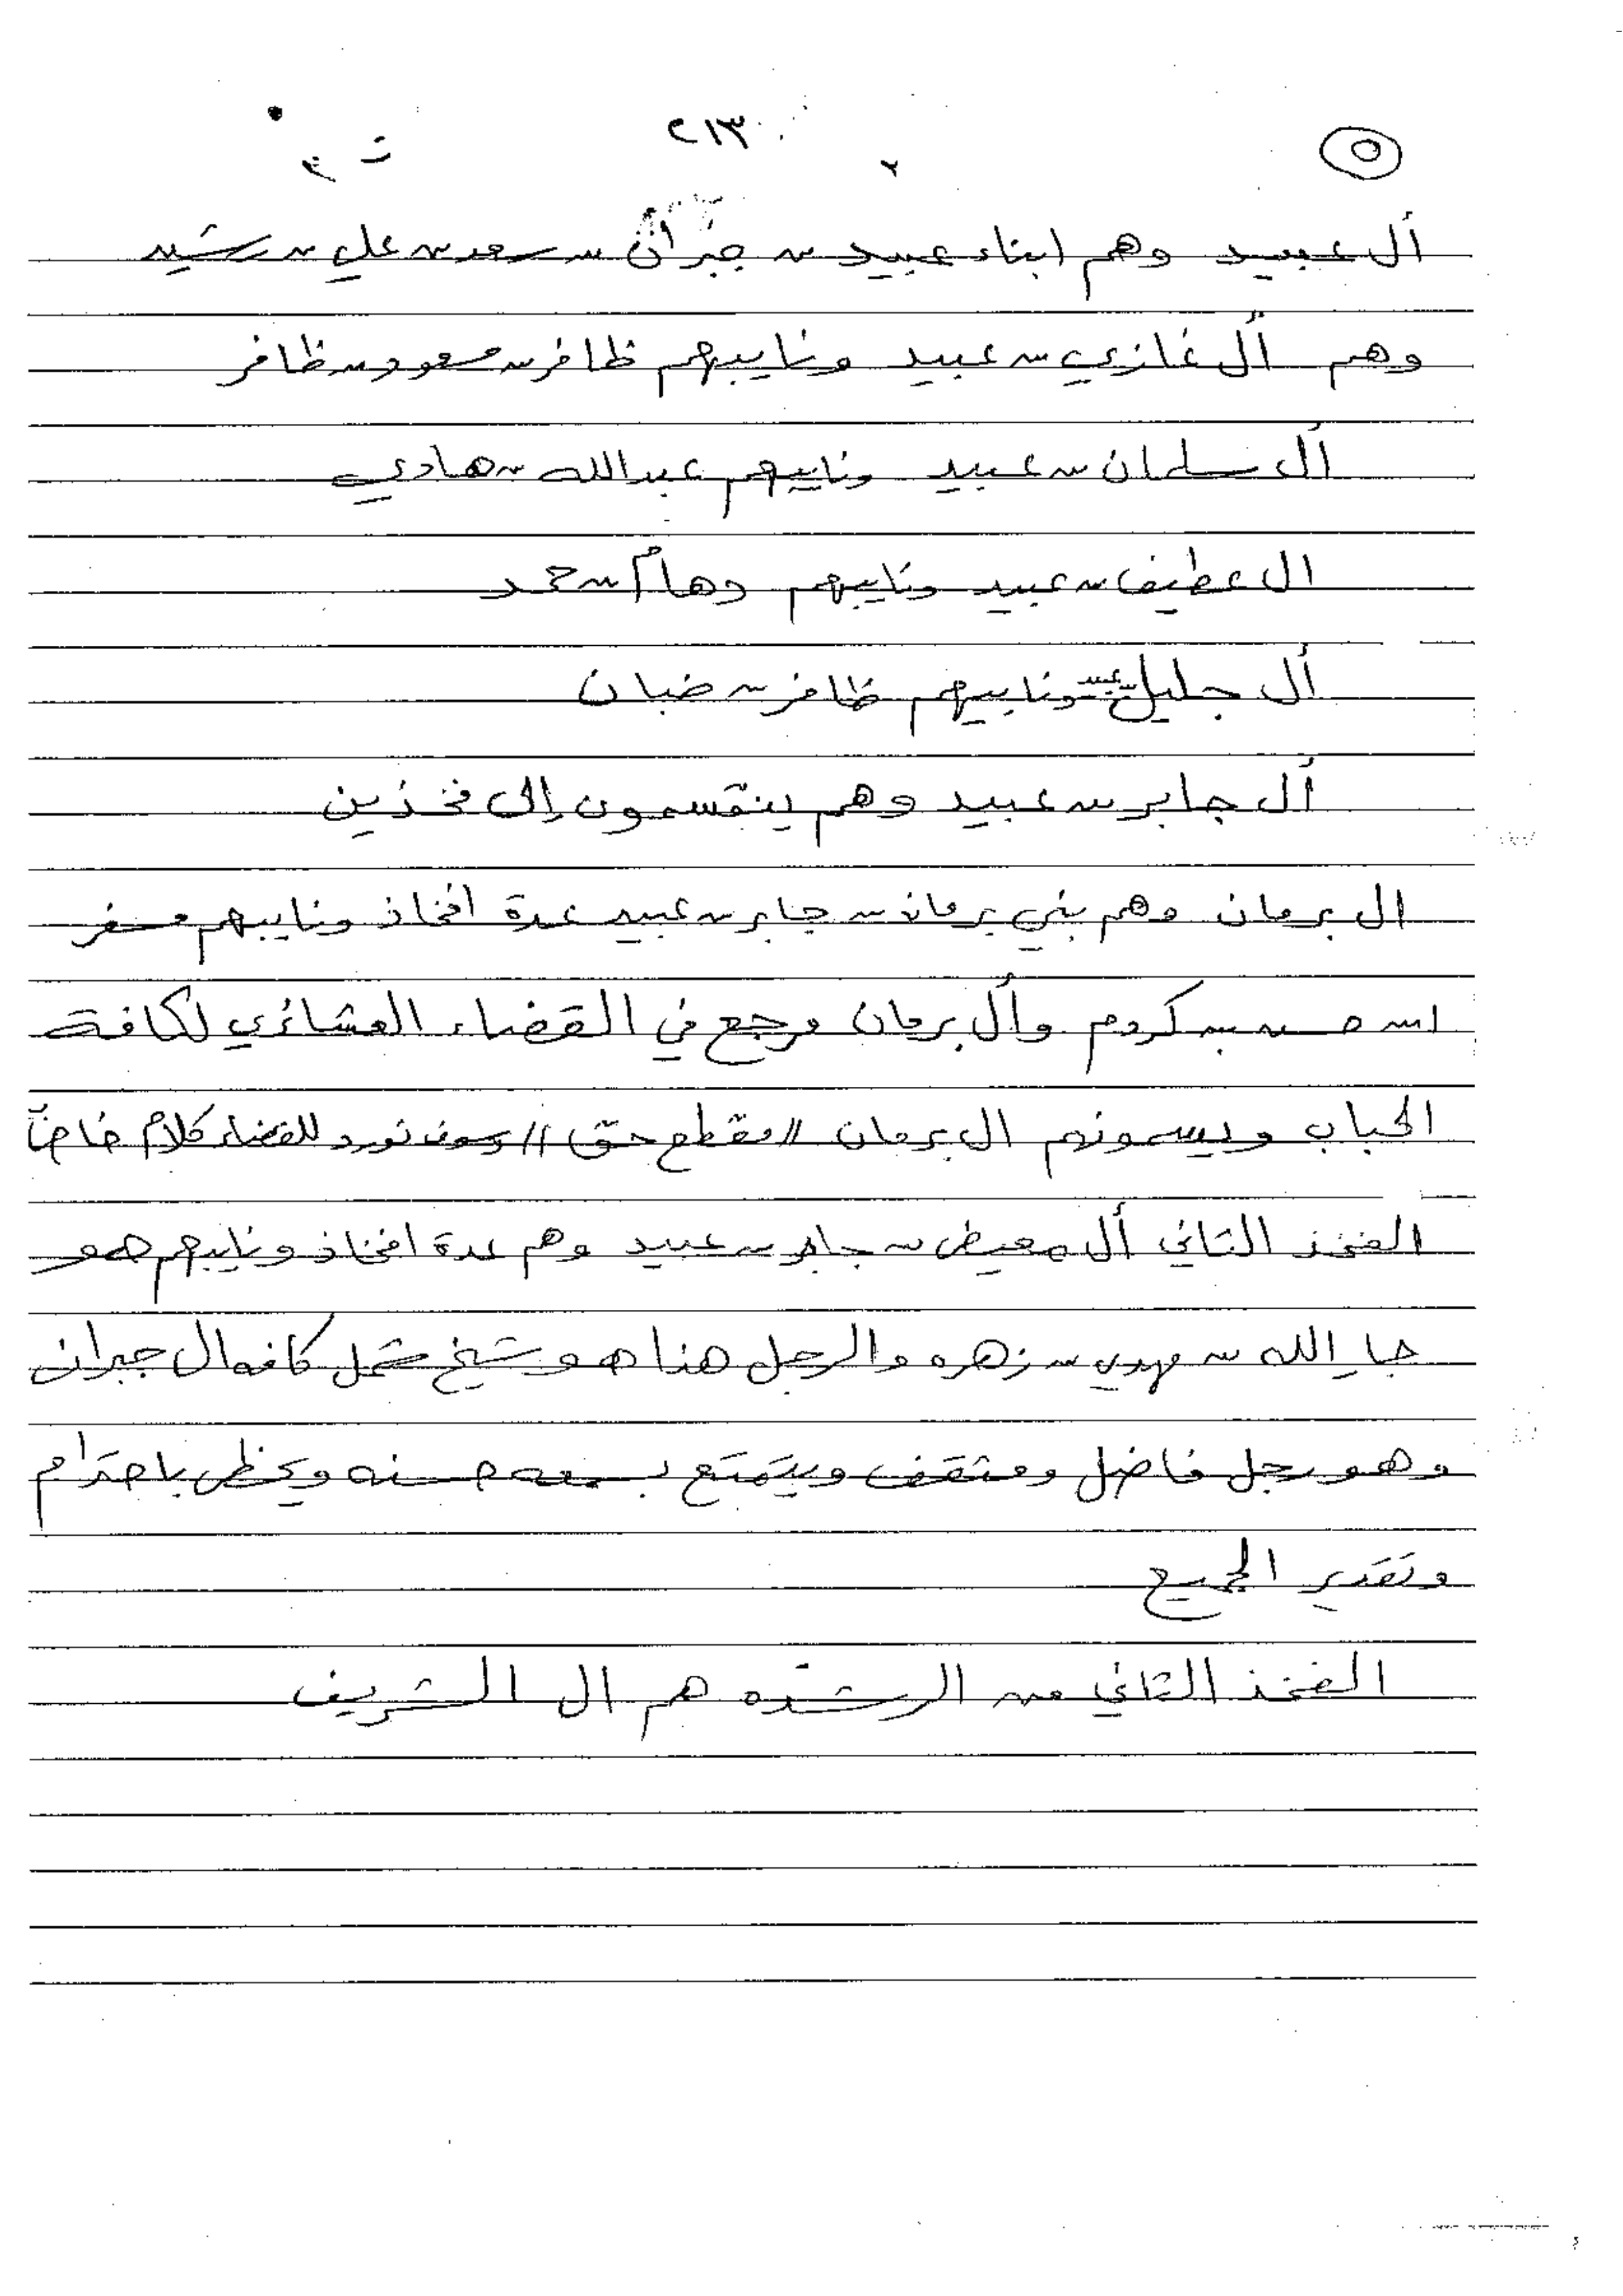 ٢١٣ ٥
آل عبيد وهم ابناء عبيد بن جبران بن سعد بن علي بن رشيد
وهم آل غازي بن عبيد ونايبهم ظافر بن مسعود بن ظافر
آل سلمان بن عبيد ونايبهم عبدالله بن هادي
ال عطيف بن عبيد ونايبهم دهام بن حمد
آل جليل بن عبيد ونايبهم ظافر بن ضبان
آل جابر بن عبيد وهم ينقسمون إلى فخذين
ال برمان وهم بني برمان بن جابر بن عبيد عدة افخاذ ونايبهم مسفر
بن كروم وآل برمان مرجع في القضاء العشائري لكافة
الحباب ويسمونهم ال برمان // مقطع حق // وسوف نورد للقضاء كلام خاص
الفخذ الثاني آل معيض بن جابر بن عبيد وهم عدة افخاذ ونايبهم هو
جارالله بن مهدي بن زهره والرجل هذا هو شيخ شمل كافه ال جبران
وهو رجل فاضل ومثقف ويتمتع بسمعه حسنه ويحظى باحترام
وتقدير الجميع
الفخذ الثاني من الرشده هم ال الشريف